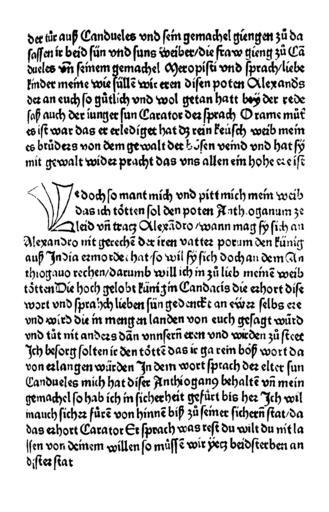 der tür auß Candueles vnd sein gemachel giengen zů da
sassen ir beid sün vnd suns weiber/die fraw gieng zů Cā
dueles vn̄ seinem gemachel Meropisti vnd sprach/liebe
kinder meine wie süllē wir eren disen poten Alexands
der an euch so gůtlich vnd wol getan hatt bey der rede
saß auch der iunger sun Carator der sprach O rame můt
es ist war das er erlediget hat dz rein keüsch weib mein
es brůders von dem gewalt der bösen veind vnd hat sy
mit gewalt wider pracht das vns allen ein hohe ere ist
Yedoch so mant mich vnd pitt mich mein weib
das ich tötten sol den poten Anthoganum ze
leid vn̄ tracz Alexādro/wann mag sy sich an
Alexandro nit gerechē der iren vatter porum den künig
auß India ermordet hat so wil sy sich doch an dem An
thiogauo rechen/darumb will ich in zů lieb meinē weib
tötten Die hoch gelobt künigin Candacis die erhort dise
wort vnd sprahch lieben sün gedenckt an ewer selbs ere
vnd wird die in mengen landen von euch gesagt würd
vnd tůt nit anders dān vnnsern eren vnd wirden zů steet
Ich besorg solten ir den töttē das ir ga rein böß wort da
von erlangen würden In dem wort sprach der elter sun
Candueles mich hat diser Anthiogan9 behaltē vn̄ mein
gemachel so hab ich in sicherheit gefürt bis her Ich wil
mauch sicher fürē von hinnē biß zů seiner sichern̄ stat/da
das erhort Carator Er sprach was rest du wilt du nit la
ssen von deinem willen so můssē wir yecz beid sterben an
diser stat